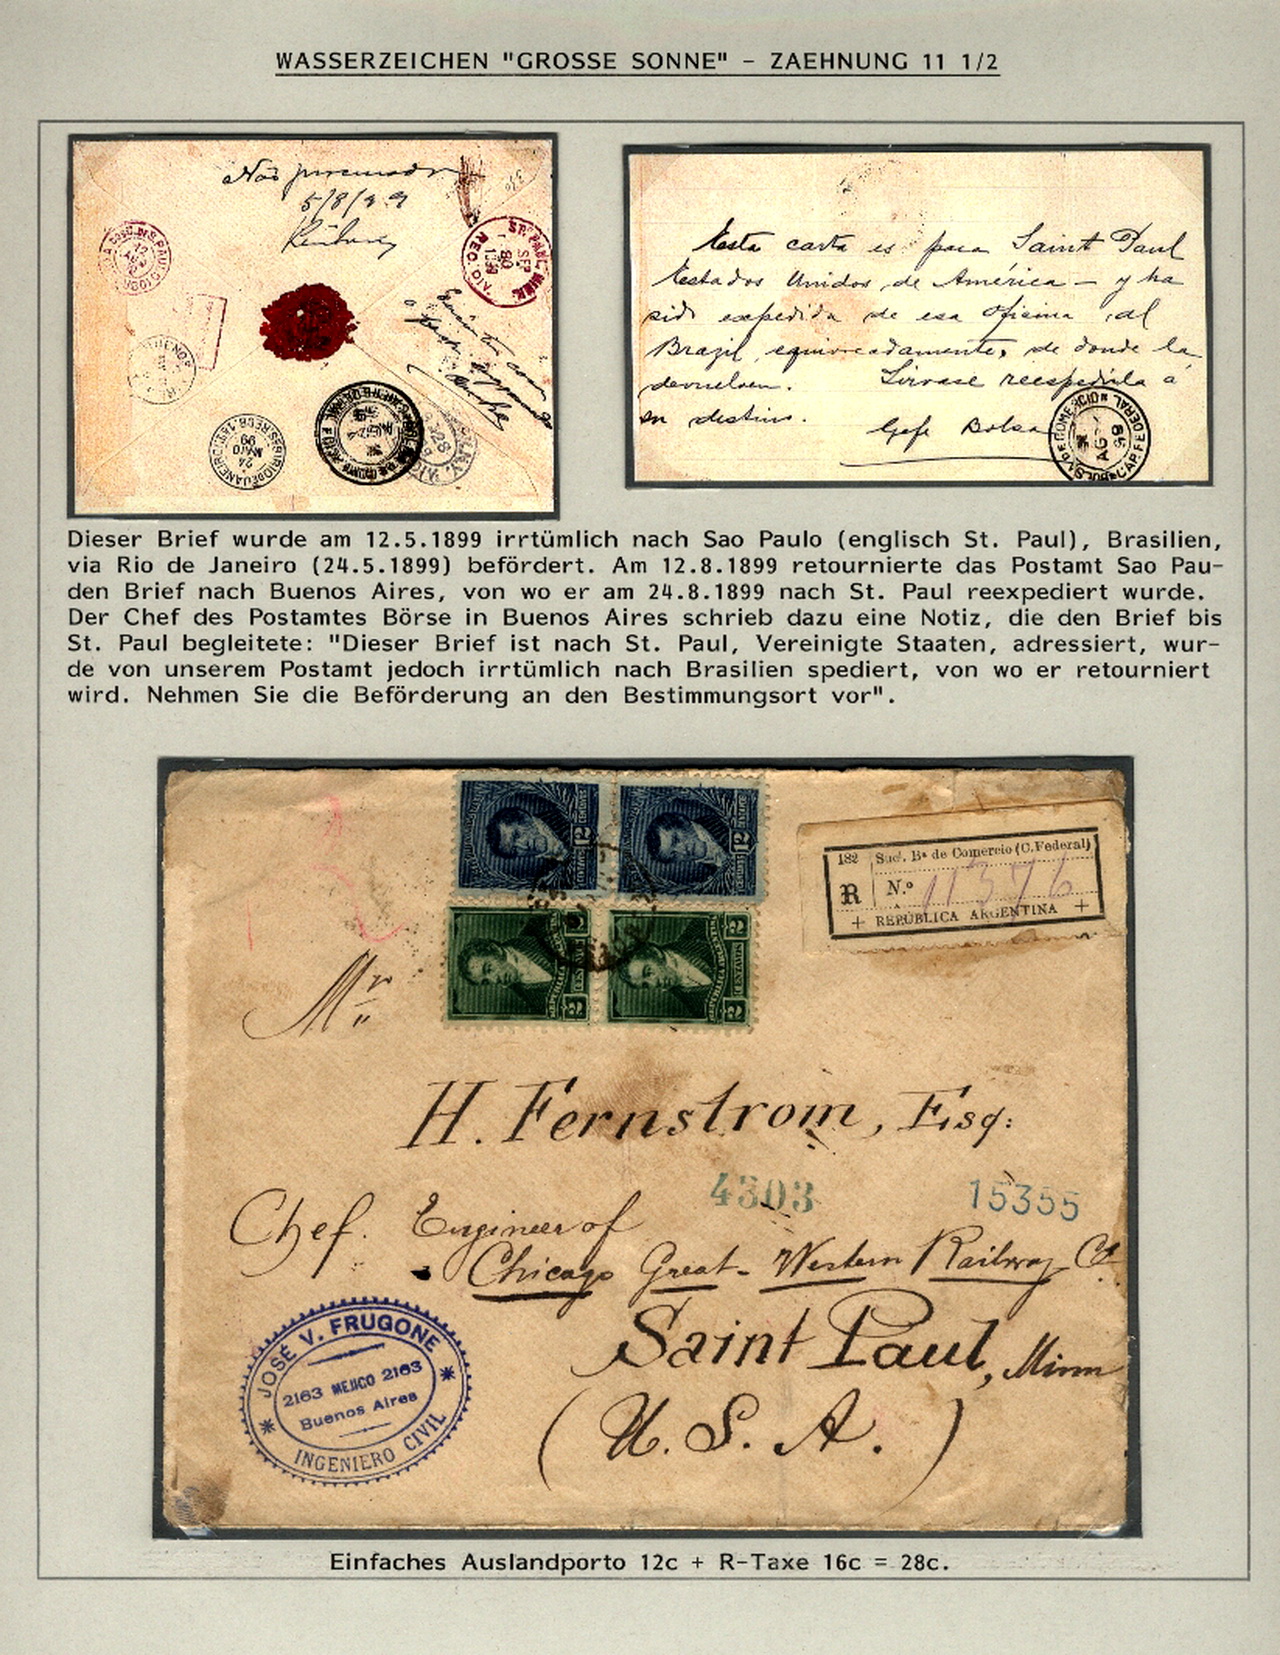 WASSERZEICHEN "GROSSE SONNE" - ZAEHNUNG 11 1/2
Não procurado
5/8/99
ST. PAUL, MINN.
REC'D.
SEP
RIO DE JANEIRO
24
MAIO
99
Esta carta es para Saint Paul
Estados Unidos de América - y ha
sido expedida de esa Oficina, al
Brazil, equivocadamente, de donde la
devuelven. Sírvase reexpedirla á
su destino.
Gefe Bolsa
Dieser Brief wurde am 12.5.1899 irrtümlich nach Sao Paulo (englisch St. Paul), Brasilien,
via Rio de Janeiro (24.5.1899) befördert. Am 12.8.1899 retournierte das Postamt Sao Pau-
den Brief nach Buenos Aires, von wo er am 24.8.1899 nach St. Paul reexpediert wurde.
Der Chef des Postamtes Börse in Buenos Aires schrieb dazu eine Notiz, die den Brief bis
St. Paul begleitete: "Dieser Brief ist nach St. Paul, Vereinigte Staaten, adressiert, wur-
de von unserem Postamt jedoch irrtümlich nach Brasilien spediert, von wo er retourniert
wird. Nehmen Sie die Beförderung an den Bestimmungsort vor".
12 CENTAVOS
12 CENTAVOS
REPUBLICA ARGENTINA 2 CENTAVOS 2
REPUBLICA ARGENTINA 2 CENTAVOS 2
182 Sucl. Ba. de Comercio (C. Federal)
R N.º 11376
+ REPÚBLICA ARGENTINA +
Mr
H. Fernstrom, Esq:
4303 15355
Chef. Engineer of
Chicago Great-Western Railway Co.
Saint Paul, Minn
(U. S. A.)
JOSÉ V. FRUGONE
2163 MEJICO 2163
Buenos Aires
INGENIERO CIVIL
Einfaches Auslandporto 12c + R-Taxe 16c = 28c.